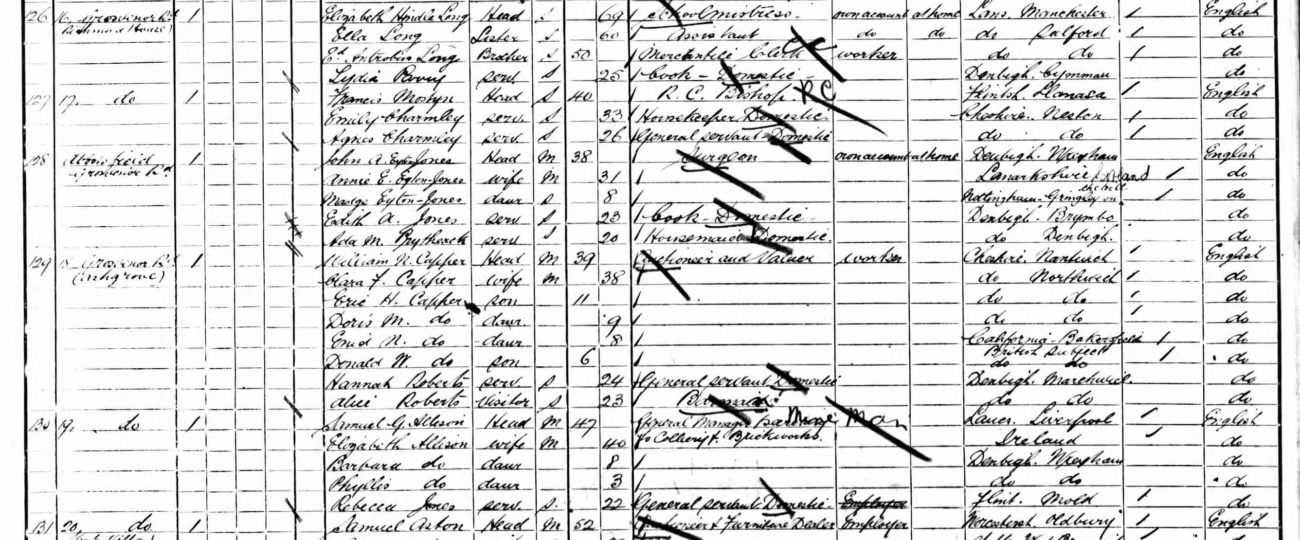 126 16, Grosvenor Rd 1 Elizabeth Hindle Long Head S 69 Schoolmistress own account at home Lanc. Manchester 1 English
Richmond House) Ella Long Sister S 60 Assistant do do do Salford 1 do
Ed Antrobus Long Brother S 50 Mercantile Clerk worker do do 1 do
Lydia serv S 25 Cook - Domestic Denbigh. do
127 17. do 1 Francis Mostyn Head S 40 R. C. Bishop R C Flintsh. Llanasa 1 English
Emily Charmley serv. S 33 Housekeeper Domestic Cheshire. Neston 1 do
Agnes Charmley serv. S 26 General servant Domestic do do 1 do
128 Abbotsfield 1 John A. Eyton-Jones Head M 38 Surgeon own account at home Denbigh Wrexham English
Grosvenor Rd Annie E. Eyton-Jones wife M 31 Lanarkshire 1 do
Madge Eyton-Jones daur S 8 Nottingham - Gringley on the hill 1 do
Edith A. Jones serv S 23 Cook - Domestic Denbigh. Brymbo do
Ada M. serv S 20 Housemaid Domestic do Denbigh. do
129 18 Grosvenor Rd 1 William N. Capper Head M 39 Auctioneer and Valuer worker Cheshire. Nantwich 1 English
(Ashgrove) Clara F. Capper wife M 38 do Northwich 1 do
Eric H. Capper son 11 do do 1 do
Doris M. do daur. 9 do do 1 do
Enid N. do daur 8 California - Bakersfield 1 do
British subject
Donald W. do son 6 do do 1 do
Hannah Roberts serv. S 24 General servant Domestic Denbigh. Marchwiel. do
Alice Roberts Visitor S 23 Barmaid do do do
130 19. do 1 Samuel G. Allison Head M 47 General Manager Mine Man Lancr. Liverpool 1 English
to Colliery & Brickworks. Elizabeth Allison wife M 40 Ireland 1 do
Barbara do daur 8 Denbigh. Wrexham do
Phyllis do daur 3 do do do
Rebecca Jones serv. S. 22 General servant Domestic Employer Flint. Mold 1 do
131 20, do 1 Samuel Aston Head M 52 Auctioneer & Furniture Dealer Employer Oldbury 1 English